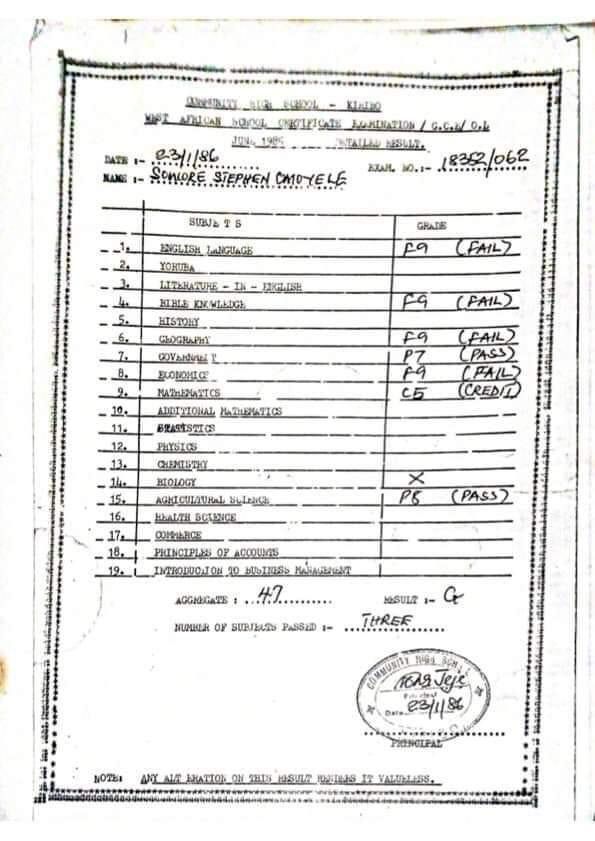 COMMUNITY HIGH SCHOOL - KISIBO
WEST AFRICAN SCHOOL CERTIFICATE EXAMINATION / G.C.E/ O.L
JUNE 1985 DETAILED RESULT.
DATE :- 23/1/86 EXAM. NO.:- 18352/062
NAME :- STEPHEN OMOYELE
SUBJE T S GRADE
1. ENGLISH LANGUAGE F9 (FAIL)
2. YORUBA
3. LITERATURE - IN - ENGLISH
4. BIBLE KNOWLEDGE F9 (FAIL)
5. HISTORY
6. GEOGRAPHY F9 (FAIL)
7. GOVERNMENT P7 (PASS)
8. ECONOMICS F9 (FAIL)
9. MATHEMATICS C5 (CREDIT)
10. ADDITIONAL MATHEMATICS
11. STATISTICS
12. PHYSICS
13. CHEMISTRY
14. BIOLOGY X
15. AGRICULTURAL SCIENCE P8 (PASS)
16. HEALTH SCIENCE
17. COMMERCE
18. PRINCIPLES OF ACCOUNTS
19. INTRODUCTION TO BUSINESS MANAGEMENT
AGGREGATE : 47 RESULT :- G
NUMBER OF SUBJECTS PASSED :- THREE
COMMUNITY HIGH SCHOOL
Principal
Date 23/1/86
PRINCIPAL
NOTE: ANY ALT ERATION ON THIS RESULT RENDERS IT VALUELESS.